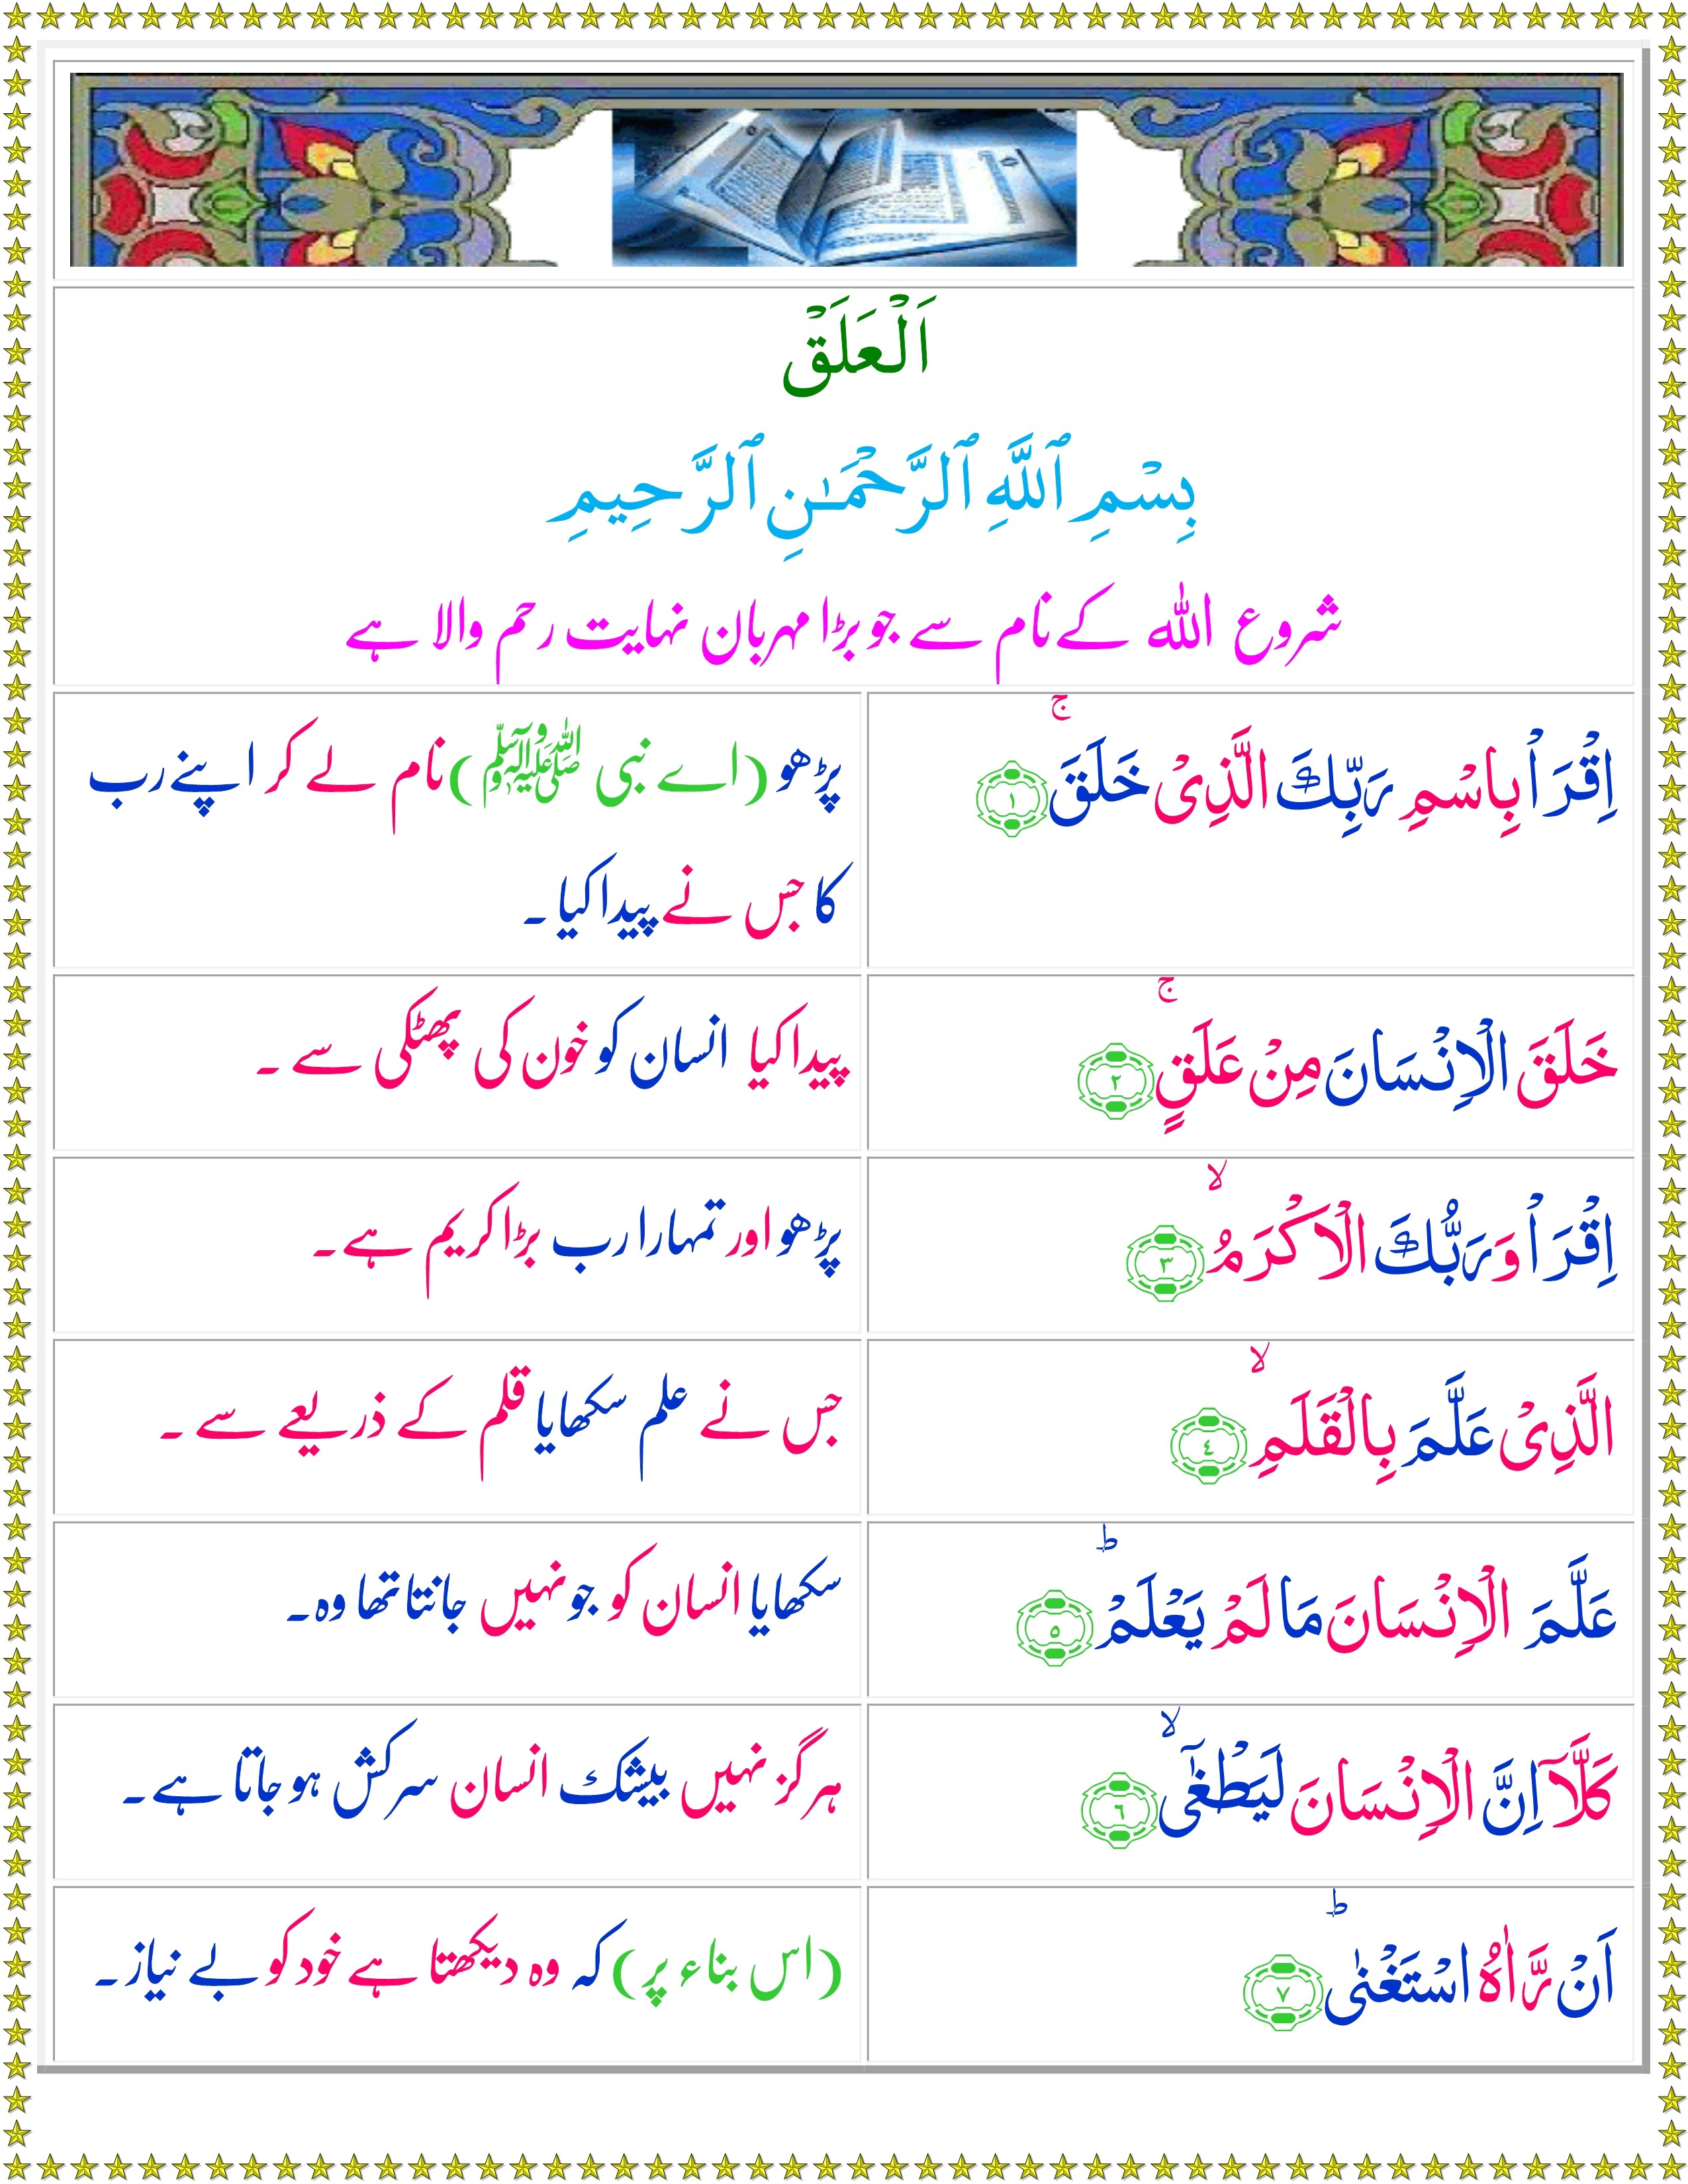 اَلْعَلَقْ
بِسْمِ ٱللَّهِ ٱلرَّحْمَـٰنِ ٱلرَّحِيمِ
شروع اللہ کے نام سے جو بڑا مہربان نہایت رحم والا ہے
اِقْرَاْ بِاسْمِ رَبِّكَ الَّذِىْ خَلَقَ‌ۚ‏ ﴿۱﴾
پڑھو (اے نبی ﷺ) نام لے کر اپنے رب
کا جس نے پیدا کیا ۔
خَلَقَ الْاِنْسَانَ مِنْ عَلَقٍ‌ۚ‏ ﴿۲﴾
پیدا کیا انسان کو خون کی پھٹکی سے ۔
اِقْرَاْ وَرَبُّكَ الْاَكْرَمُۙ‏ ﴿۳﴾
پڑھو اور تمہارا رب بڑا کریم ہے ۔
الَّذِىْ عَلَّمَ بِالْقَلَمِۙ‏ ﴿٤﴾
جس نے علم سکھایا قلم کے ذریعے سے ۔
عَلَّمَ الْاِنْسَانَ مَا لَمْ يَعْلَمْؕ‏ ﴿۵﴾
سکھایا انسان کو جو نہیں جانتا تھا وہ ۔
كَلَّاۤ اِنَّ الْاِنْسَانَ لَيَطْغٰٓىۙ‏ ﴿٦﴾
ہرگز نہیں بیشک انسان سرکش ہو جاتا ہے ۔
اَنْ رَّاٰهُ اسْتَغْنٰىؕ‏ ﴿۷﴾
(اس بناء پر) کہ وہ دیکھتا ہے خود کو بے نیاز ۔